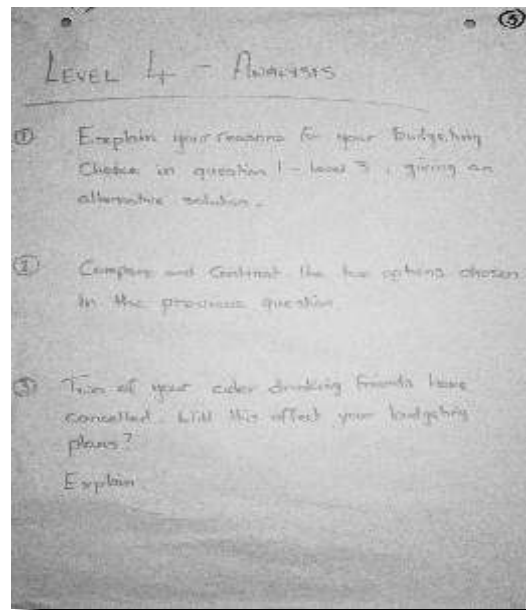 5
LEVEL 4 - ANALYSIS
1 Explain your reasons for your budgeting
Choice in question 1 - level 3, giving an
alternative solution.
2 Compare and contrast the two options chosen
in the previous question.
3 Two of your cider drinking friends have
cancelled. Will this affect your budgeting
plans?
Explain